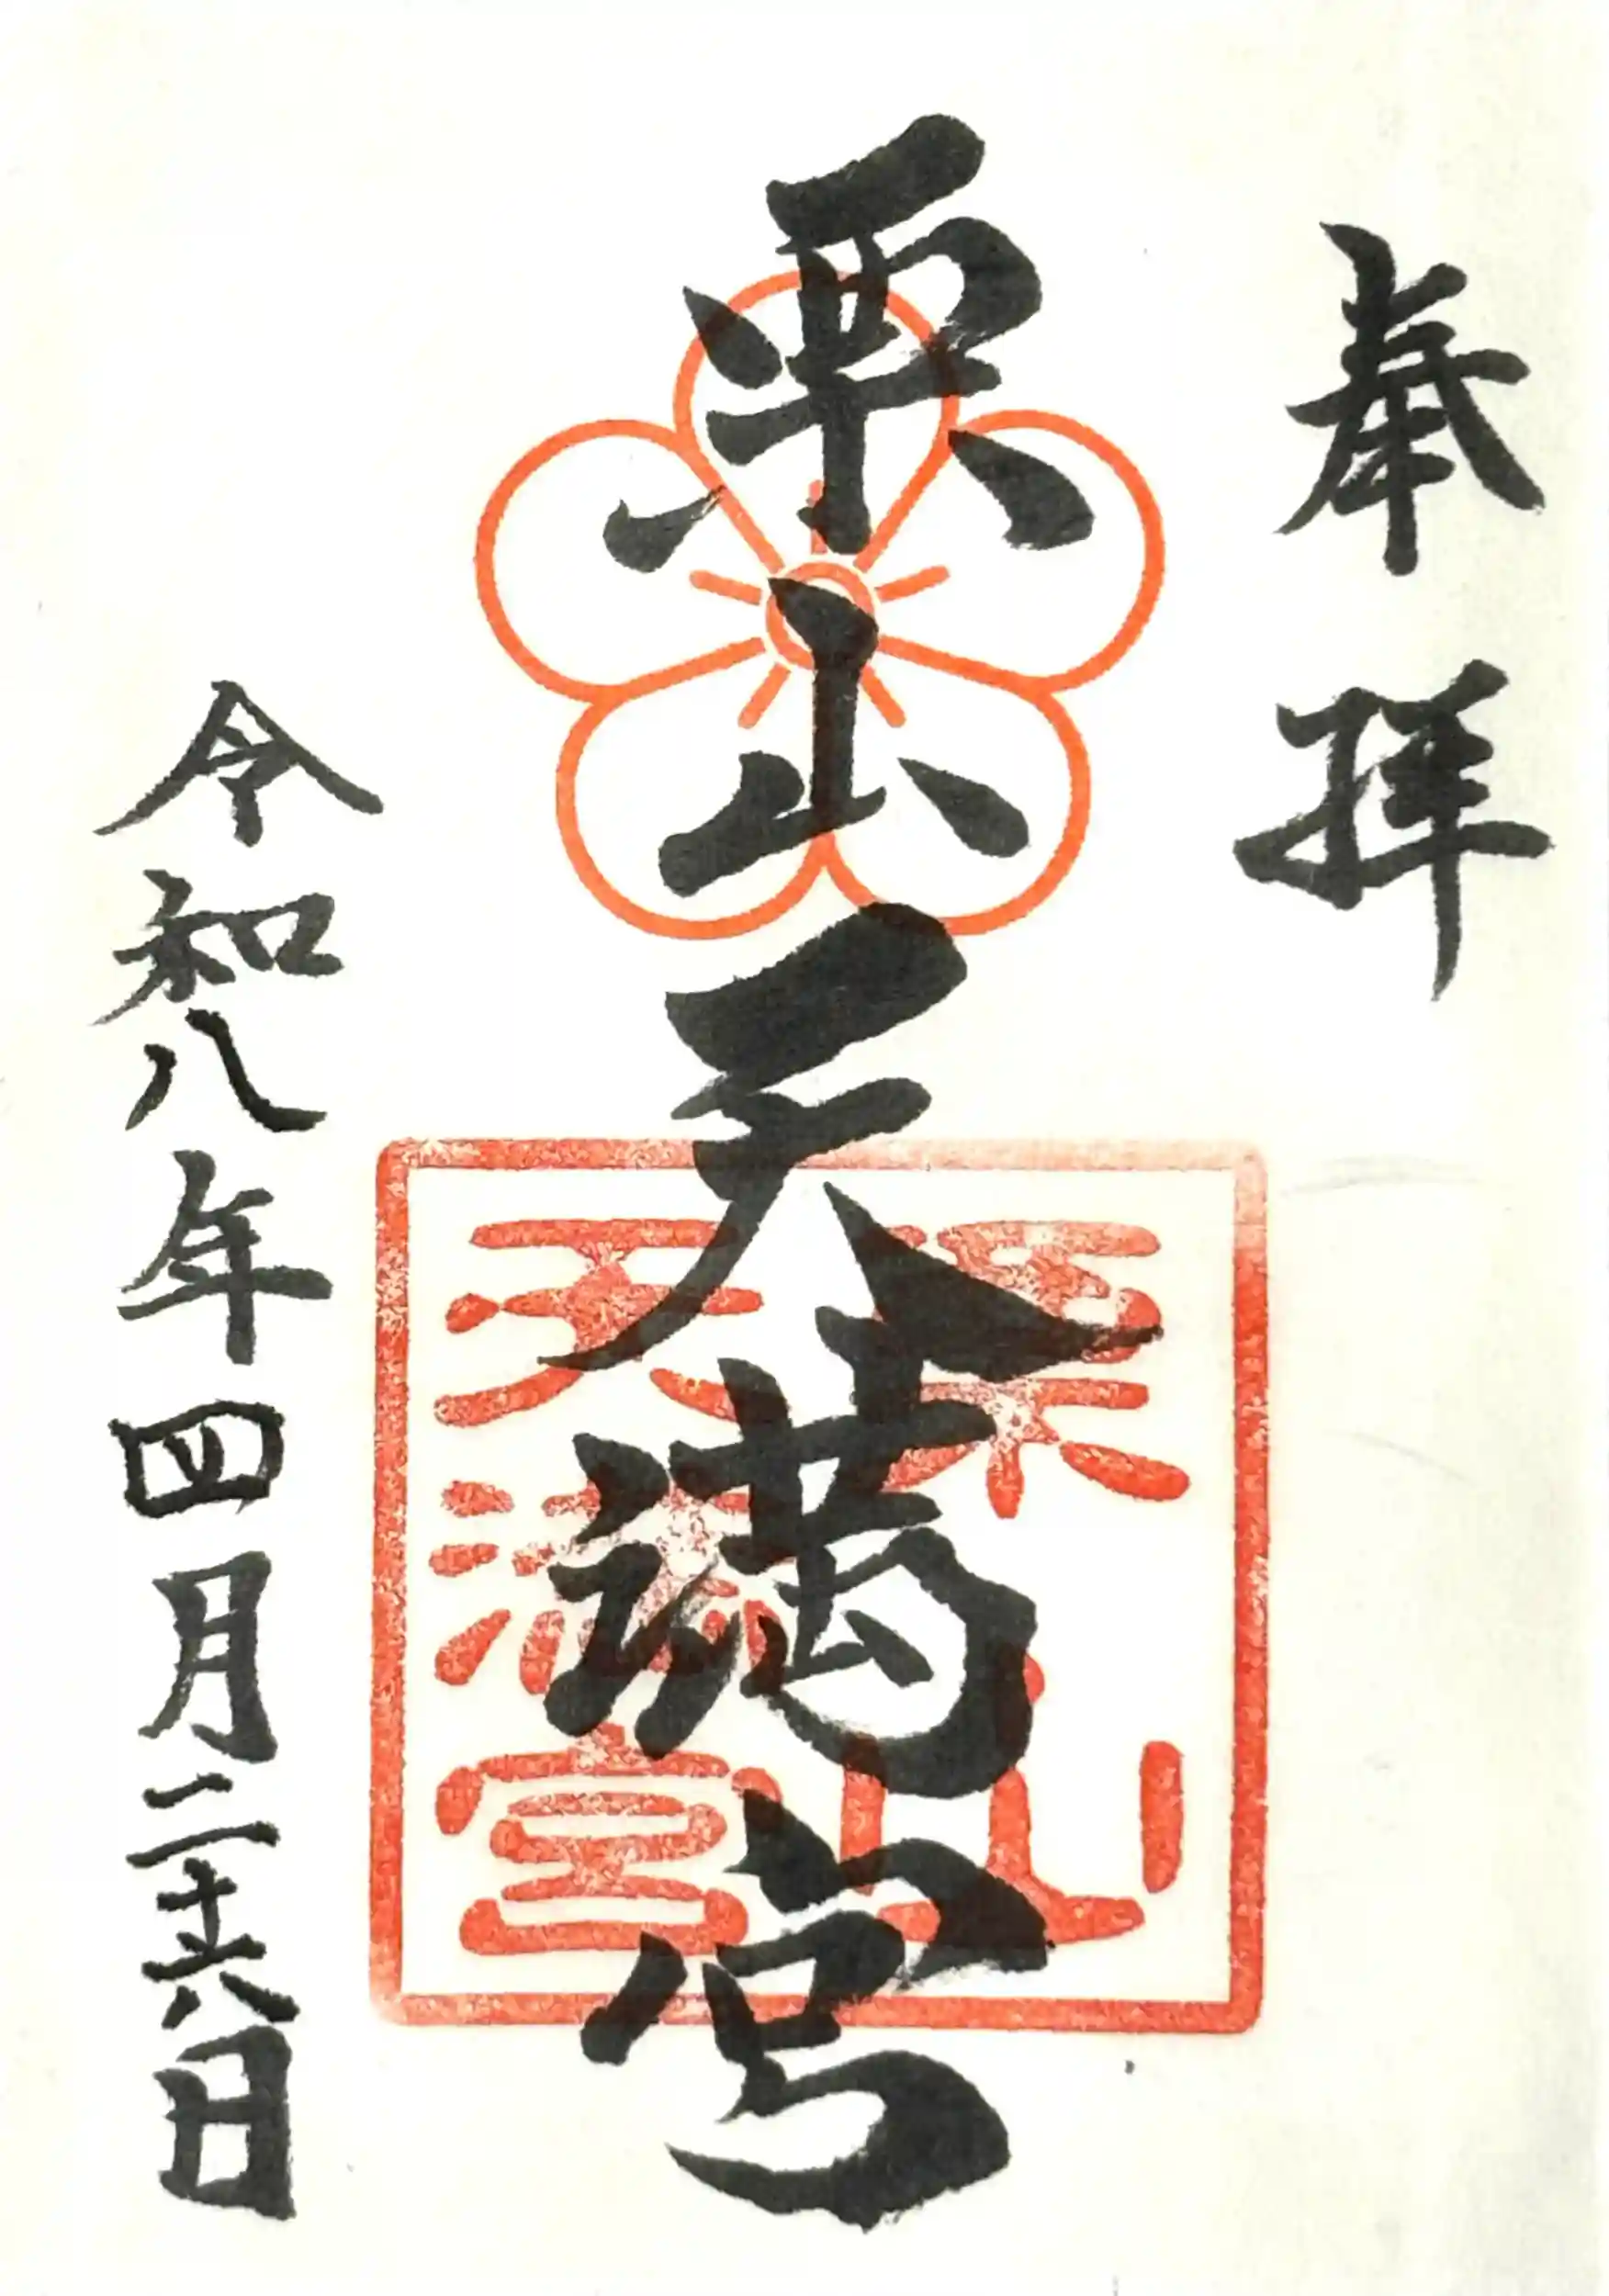 奉拝
栗山天満宮
栗山
天満宮
令和八年四月二十六日